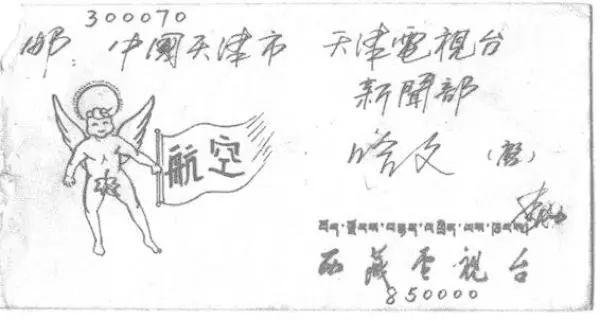 300070
邮: 中國天津市 天津電視台
新聞部
航空
哈文 (啓)
西藏電視台
850000